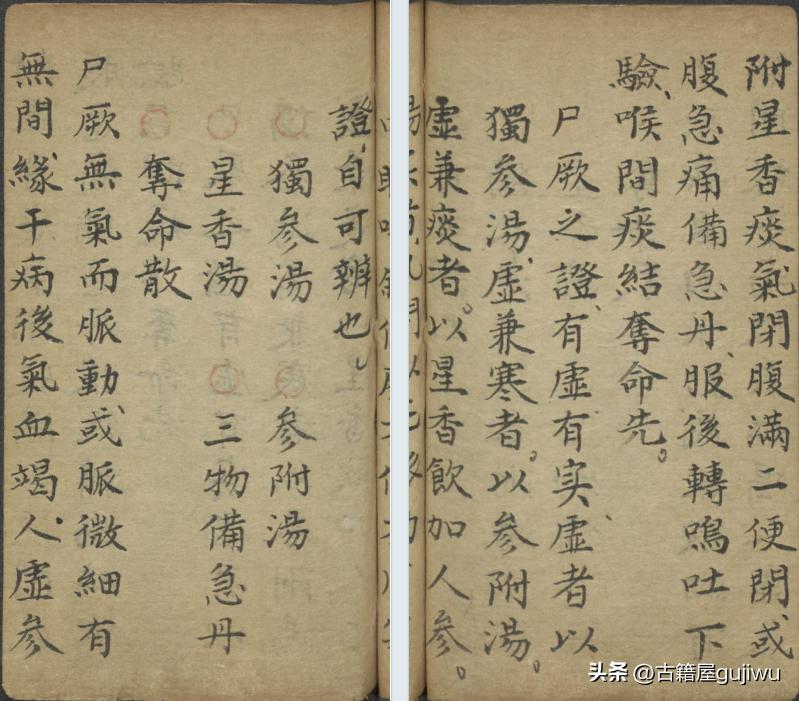 附星香痰氣閉腹滿二便閉或
腹急痛備急丹服後轉鳴吐下
驗喉間痰結奪命先
尸厥之證有虛有实虛者以
獨參湯虛兼寒者以參附湯
虛兼痰者以星香飲加人參
證自可辨也
獨參湯 參附湯
星香湯 三物備急丹
奪命散
尸厥無氣而脈動或脈微細有
無間緣干病後氣血竭人虛參
头条 @古籍屋gujiwu